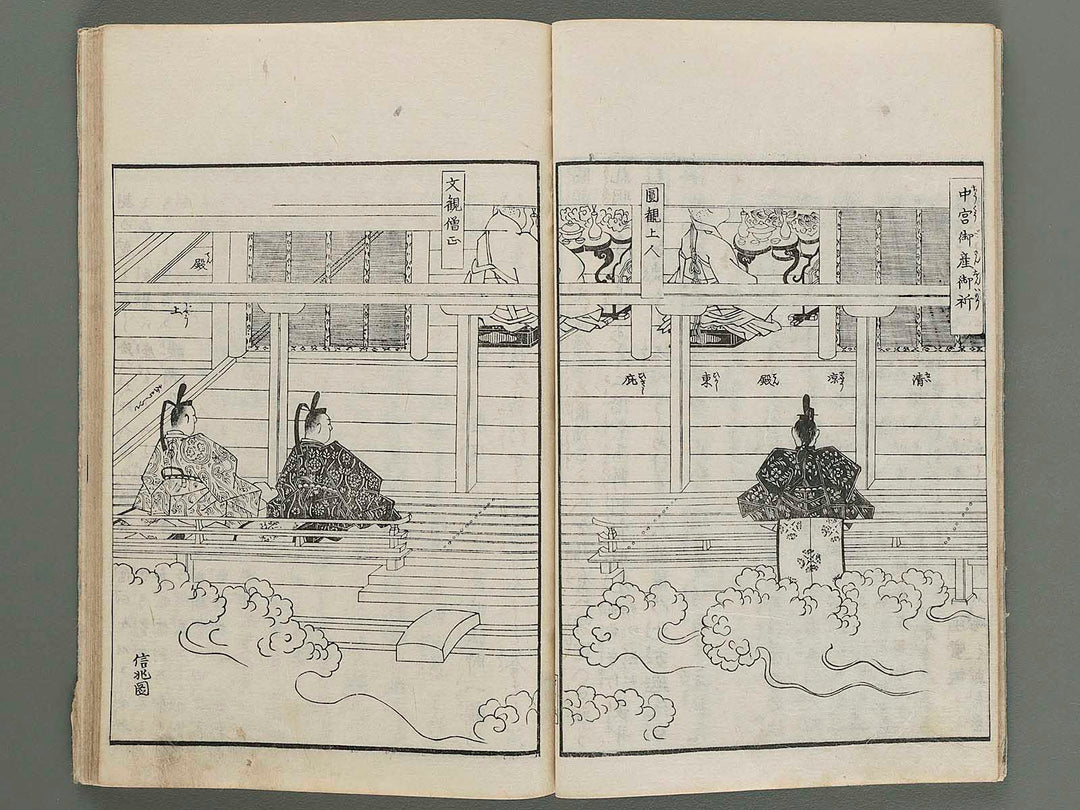 中宮御産御祈
清涼殿東庇
圓観上人
文観僧正
殿
上
信兆圖